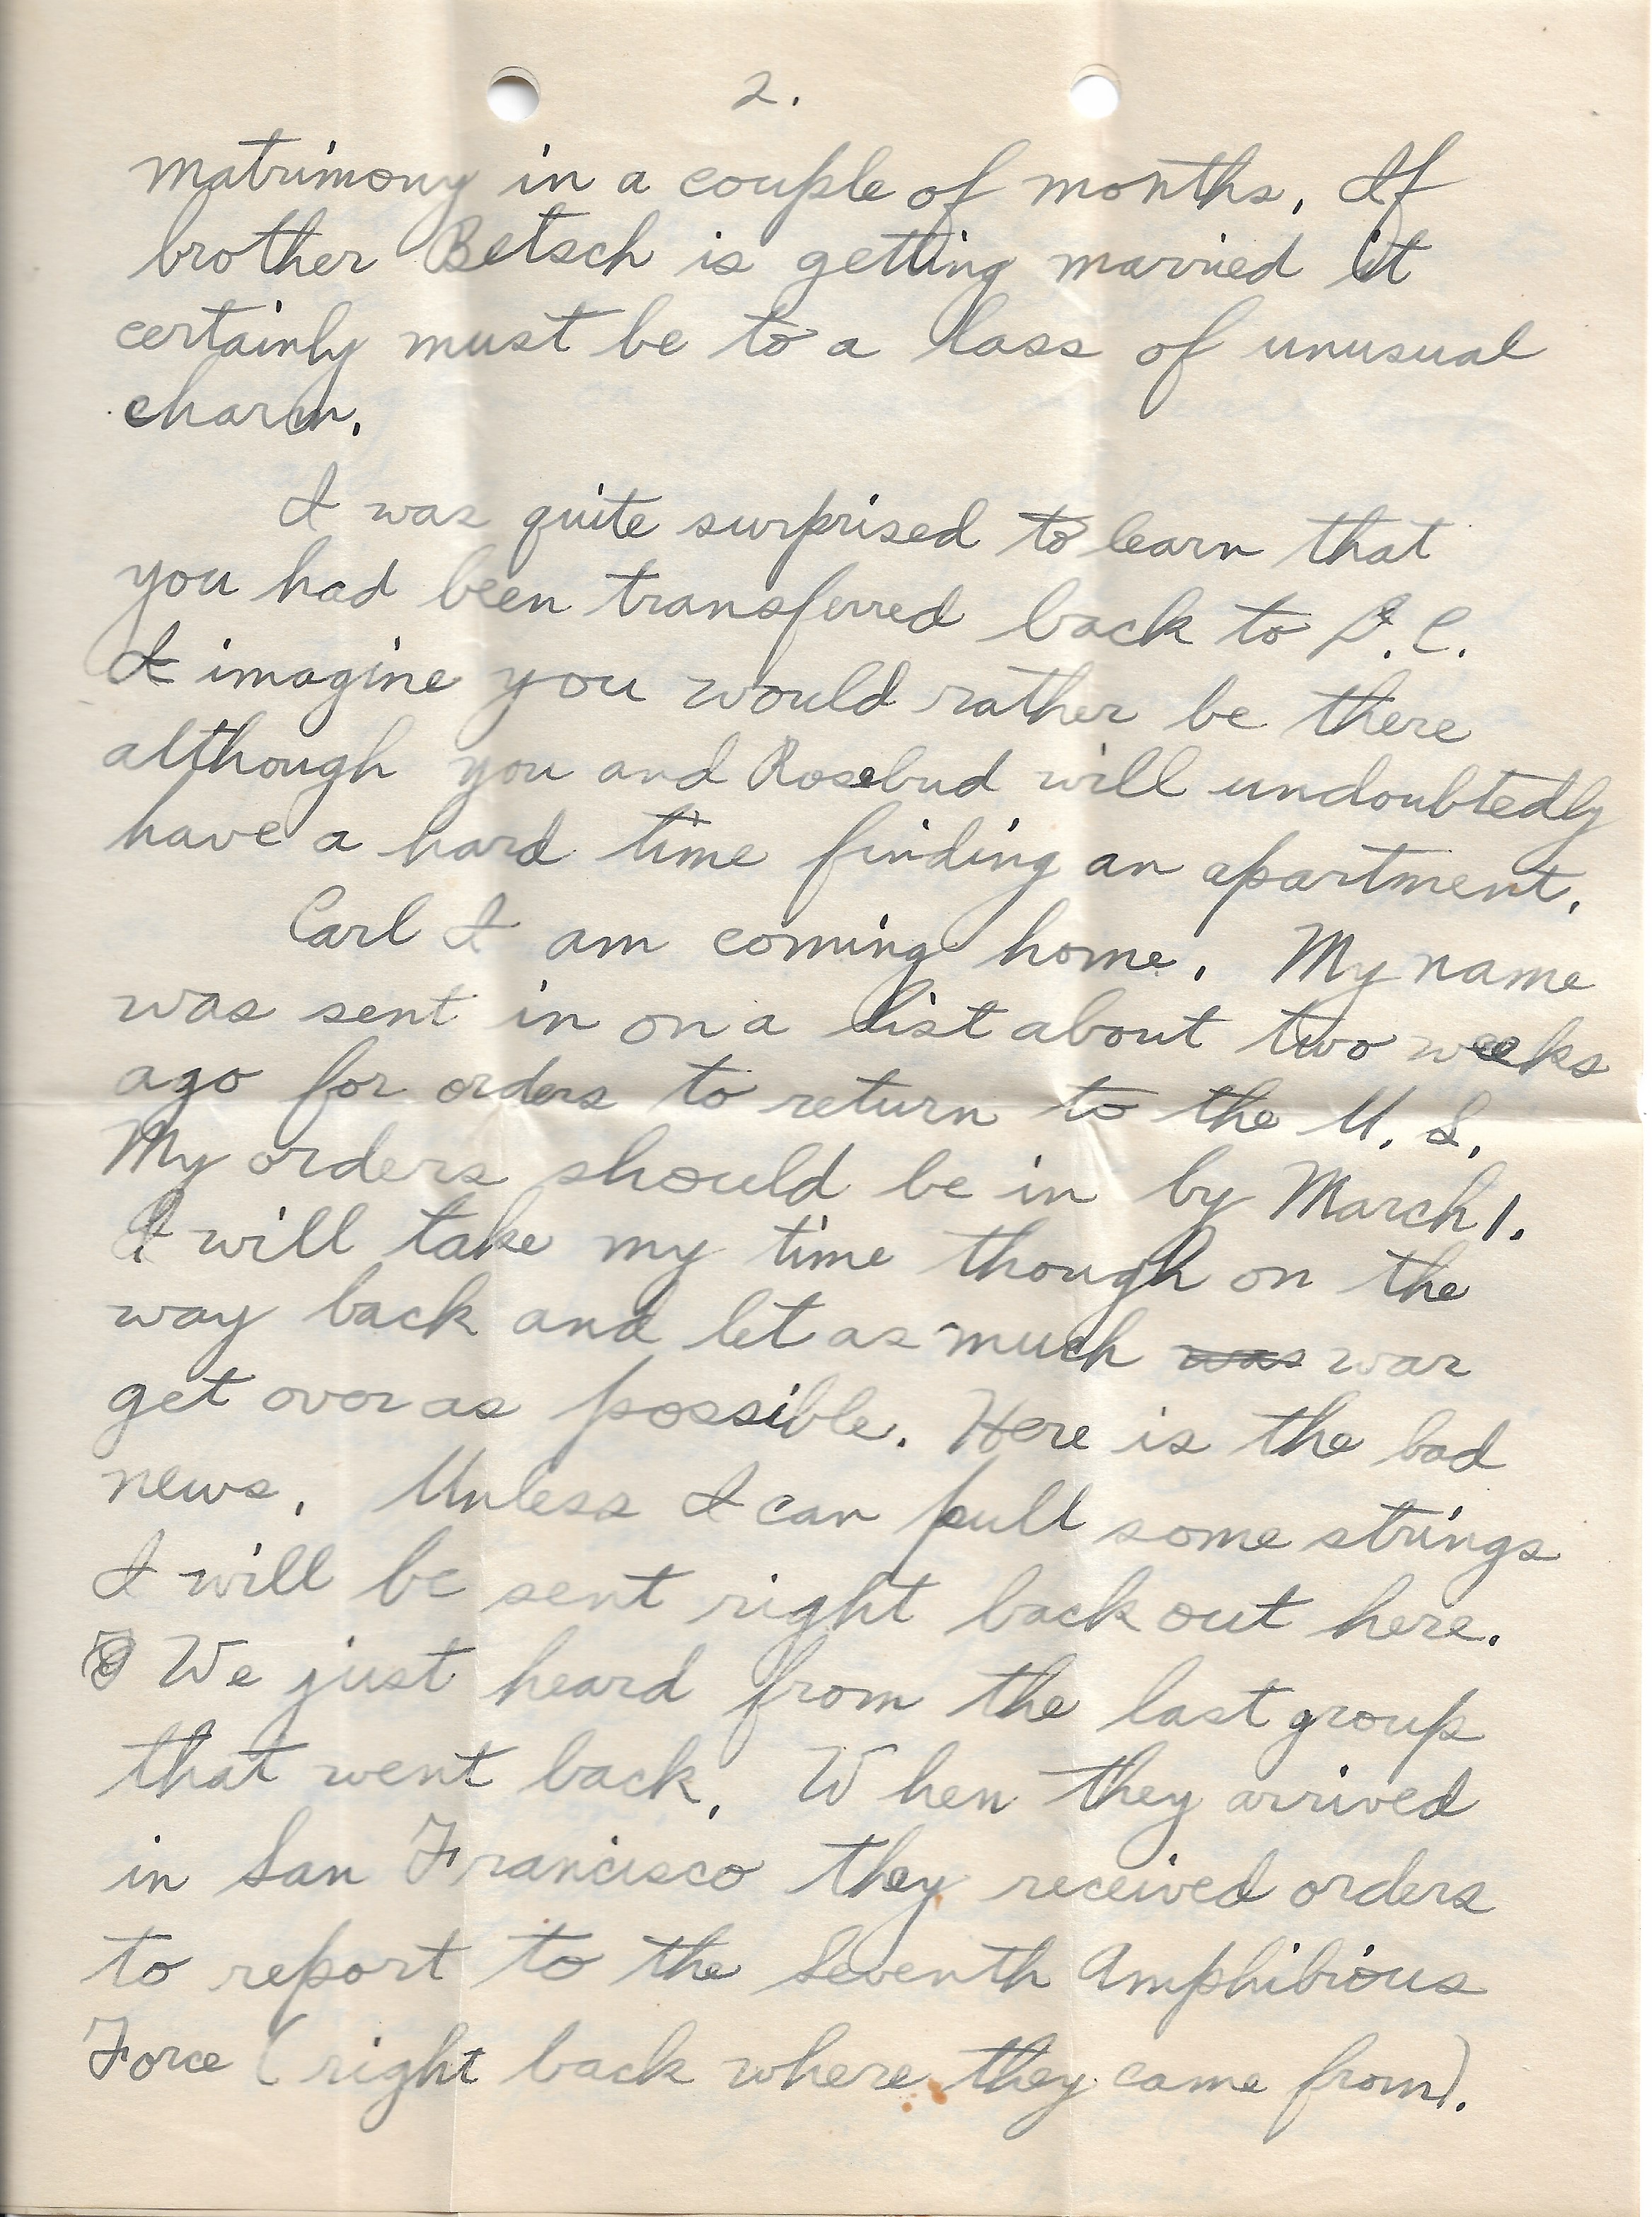 2.
matrimony in a couple of months. If
brother Betsch is getting married it
certainly must be to a lass of unusual
charm.
I was quite surprised to learn that
you had been transferred back to D.C.
I imagine you would rather be there
although you and Rosebud will undoubtedly
have a hard time finding an apartment.
Carl I am coming home. My name
was sent in on a list about two weeks
ago for orders to return to the U.S.
My orders should be in by March 1.
I will take my time though on the
way back and let as much was war
get over as possible. Here is the bad
news. Unless I can pull some strings
I will be sent right back out here.
We just heard from the last group
that went back. When they arrived
in San Francisco they received orders
to report to the Seventh Amphibious
Force (right back where they came from).